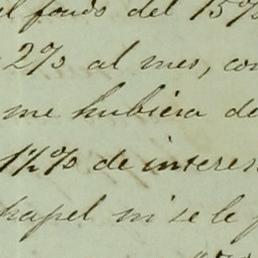 el fondo del 15%
2% al mes, con
me hubiera de
1½% de interes
hapel ni se le